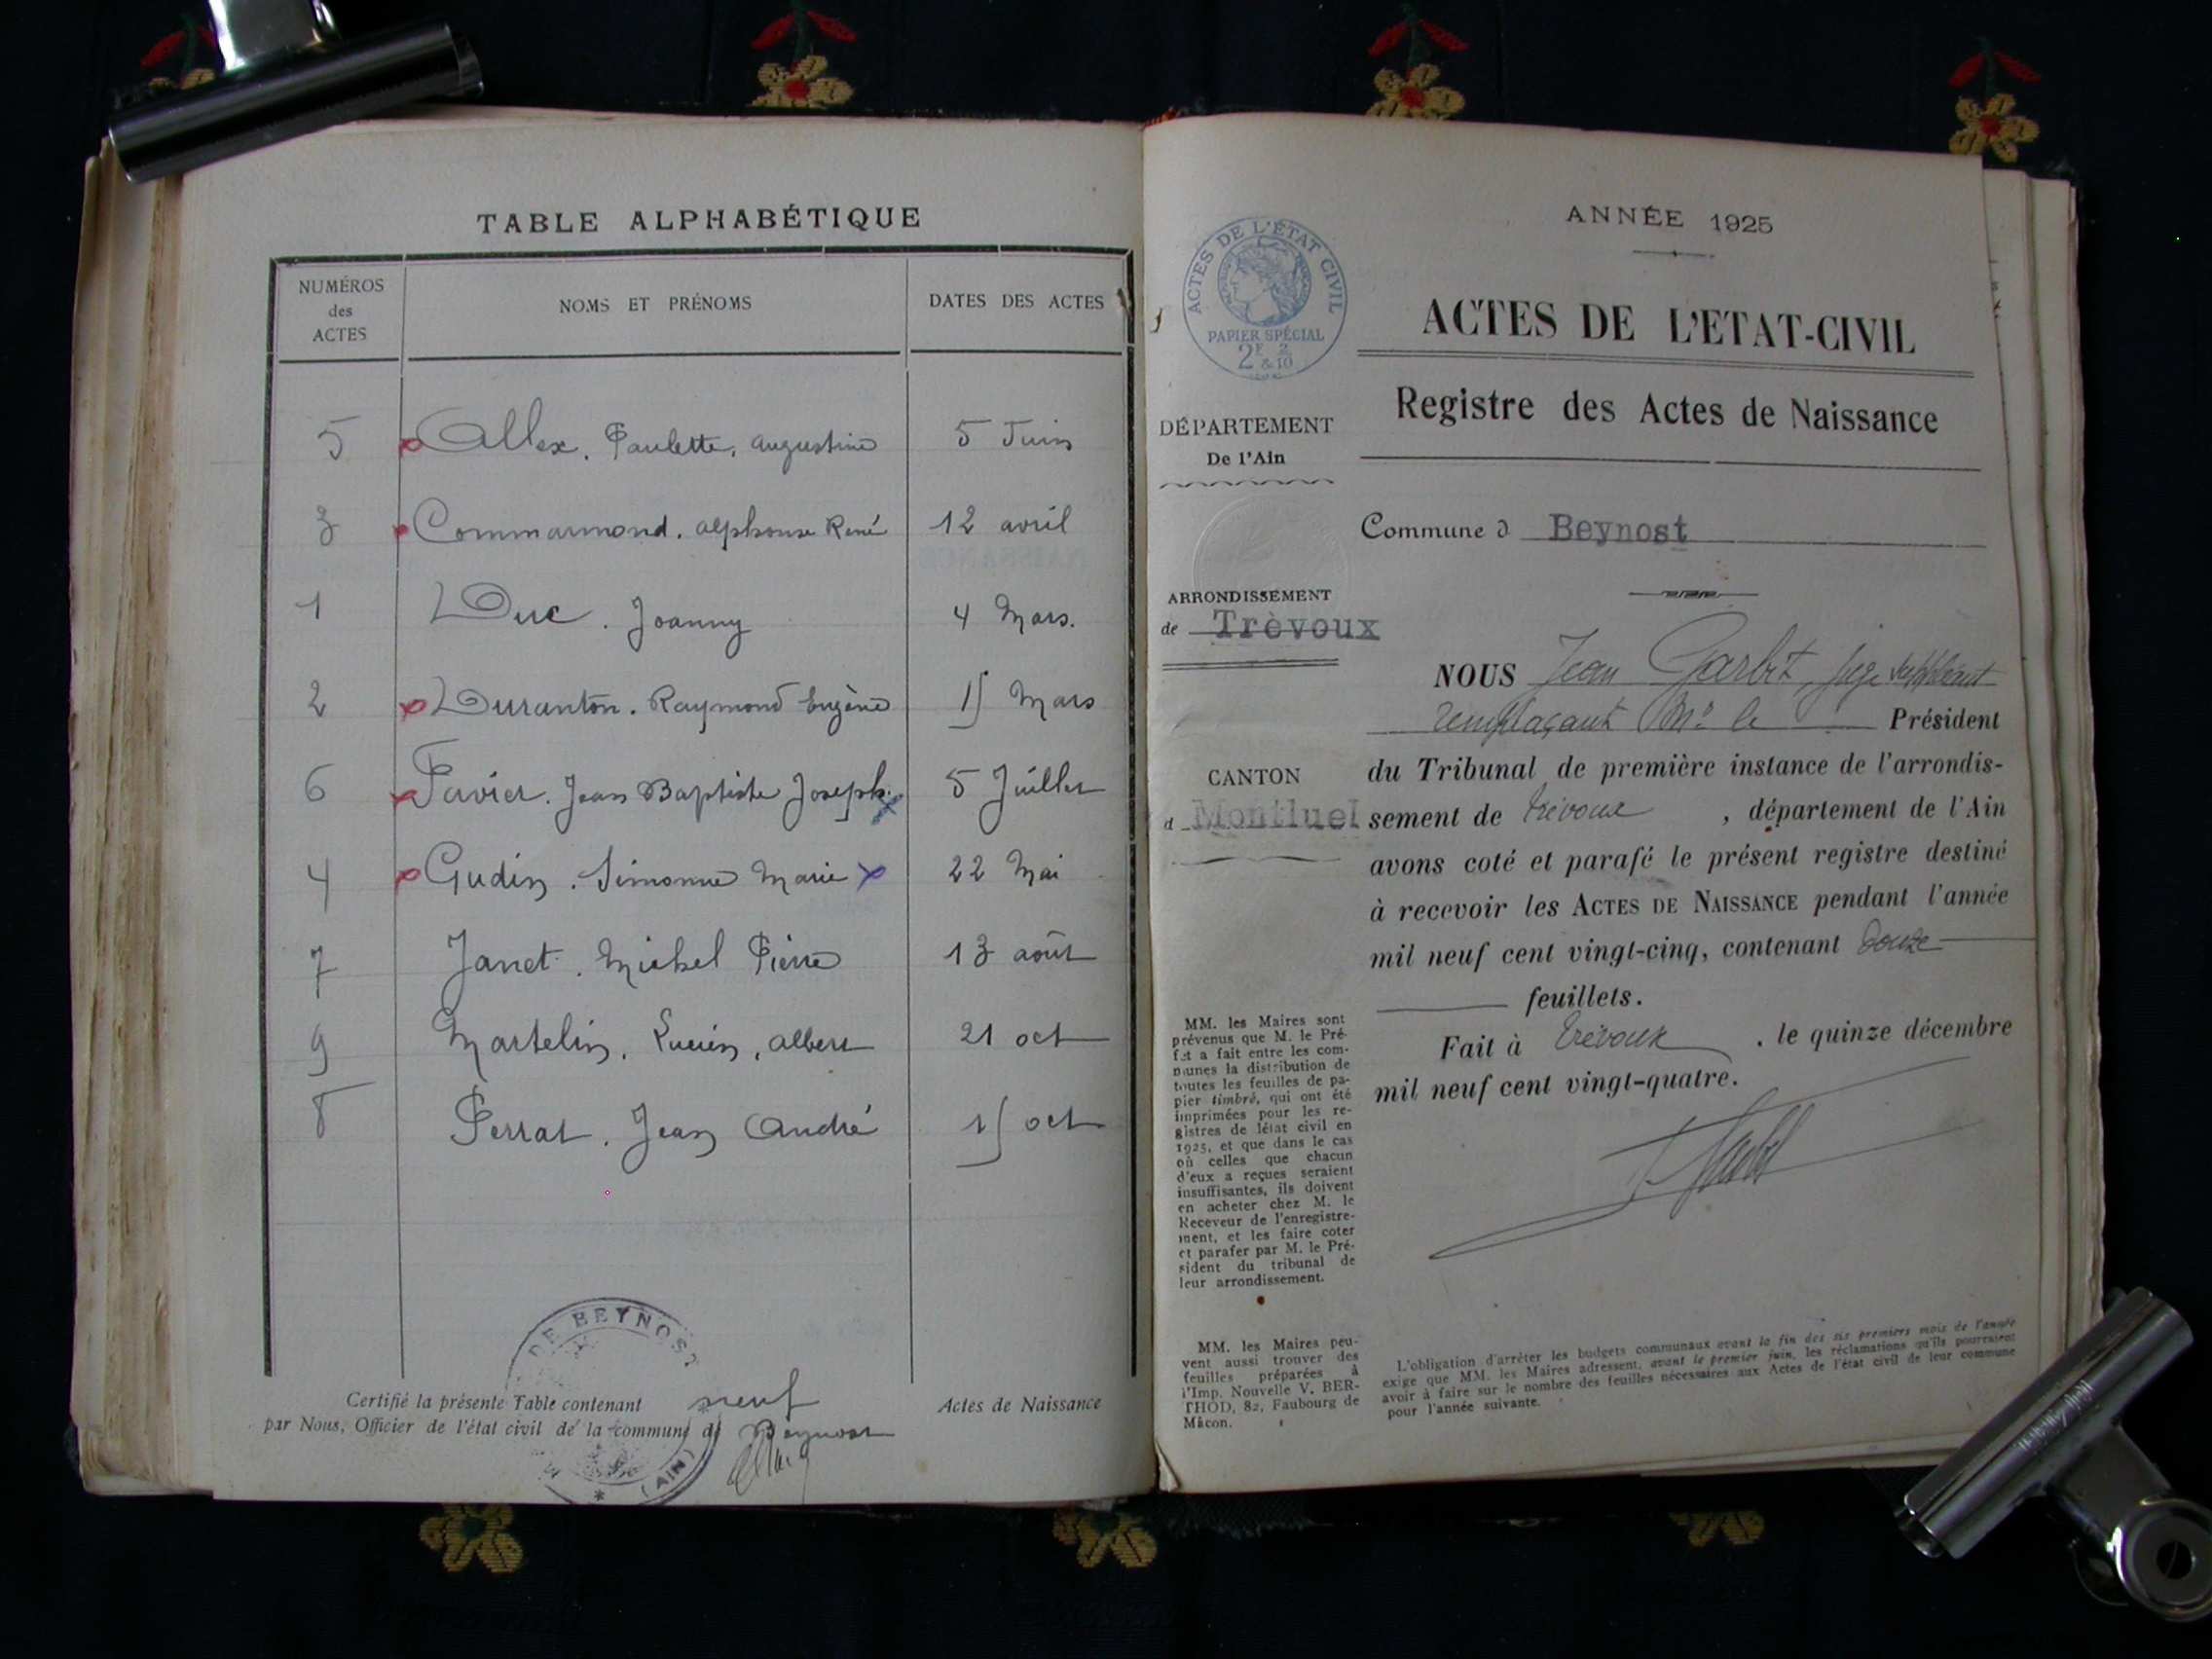 TABLE ALPHABÉTIQUE
NUMÉROS des ACTES NOMS ET PRÉNOMS DATES DES ACTES
5 Allex. Paulette, Augustine 5 Juin
3 Commarmond. Alphonse René 12 avril
1 Duc. Joanny 4 Mars.
2 Duranton. Raymond Eugène 15 Mars
6 Favier. Jean Baptiste Joseph. 5 Juillet
4 Gudin. Simonne Marie 22 Mai
7 Janet. Michel Pierre 13 août
9 Martelin, Lucien, Albert 21 oct
8 Perrat. Jean André 15 oct
DE BEYNOST
(AIN)
Certifié la présente Table contenant neuf Actes de Naissance
par Nous, Officier de l'état civil de la commune de Beynost
ANNÉE 1925
ACTES DE L'ÉTAT CIVIL
PAPIER SPÉCIAL
2F & 2/10
ACTES DE L'ETAT-CIVIL
Registre des Actes de Naissance
DÉPARTEMENT
De l'Ain
Commune d Beynost
ARRONDISSEMENT
de Trévoux
CANTON
d Montluel
NOUS Jean Garbit, juge suppléant
remplaçant Mr le Président
du Tribunal de première instance de l'arrondis-
sement de Trévoux, département de l'Ain
avons coté et parafé le présent registre destiné
à recevoir les ACTES DE NAISSANCE pendant l'année
mil neuf cent vingt-cinq, contenant douze
feuillets.
Fait à Trévoux, le quinze décembre
mil neuf cent vingt-quatre.
MM. les Maires sont
prévenus que M. le Pré-
fet a fait entre les com-
munes la distribution de
toutes les feuilles de pa-
pier timbré, qui ont été
imprimées pour les re-
gistres de létat civil en
1925, et que dans le cas
où celles que chacun
d'eux a reçues seraient
insuffisantes, ils doivent
en acheter chez M. le
Receveur de l'enregistre-
ment, et les faire coter
et parafer par M. le Pré-
sident du tribunal de
leur arrondissement.
MM. les Maires peu-
vent aussi trouver des
feuilles préparées à
l'Imp. Nouvelle V. BER-
THOD, 82, Faubourg de
Mâcon.
L'obligation d'arrêter les budgets communaux avant la fin des six premiers mois de l'année
exige que MM. les Maires adressent, avant le premier juin, les réclamations qu'ils pourraient
avoir à faire sur le nombre des feuilles nécessaires aux Actes de l'état civil de leur commune
pour l'année suivante.